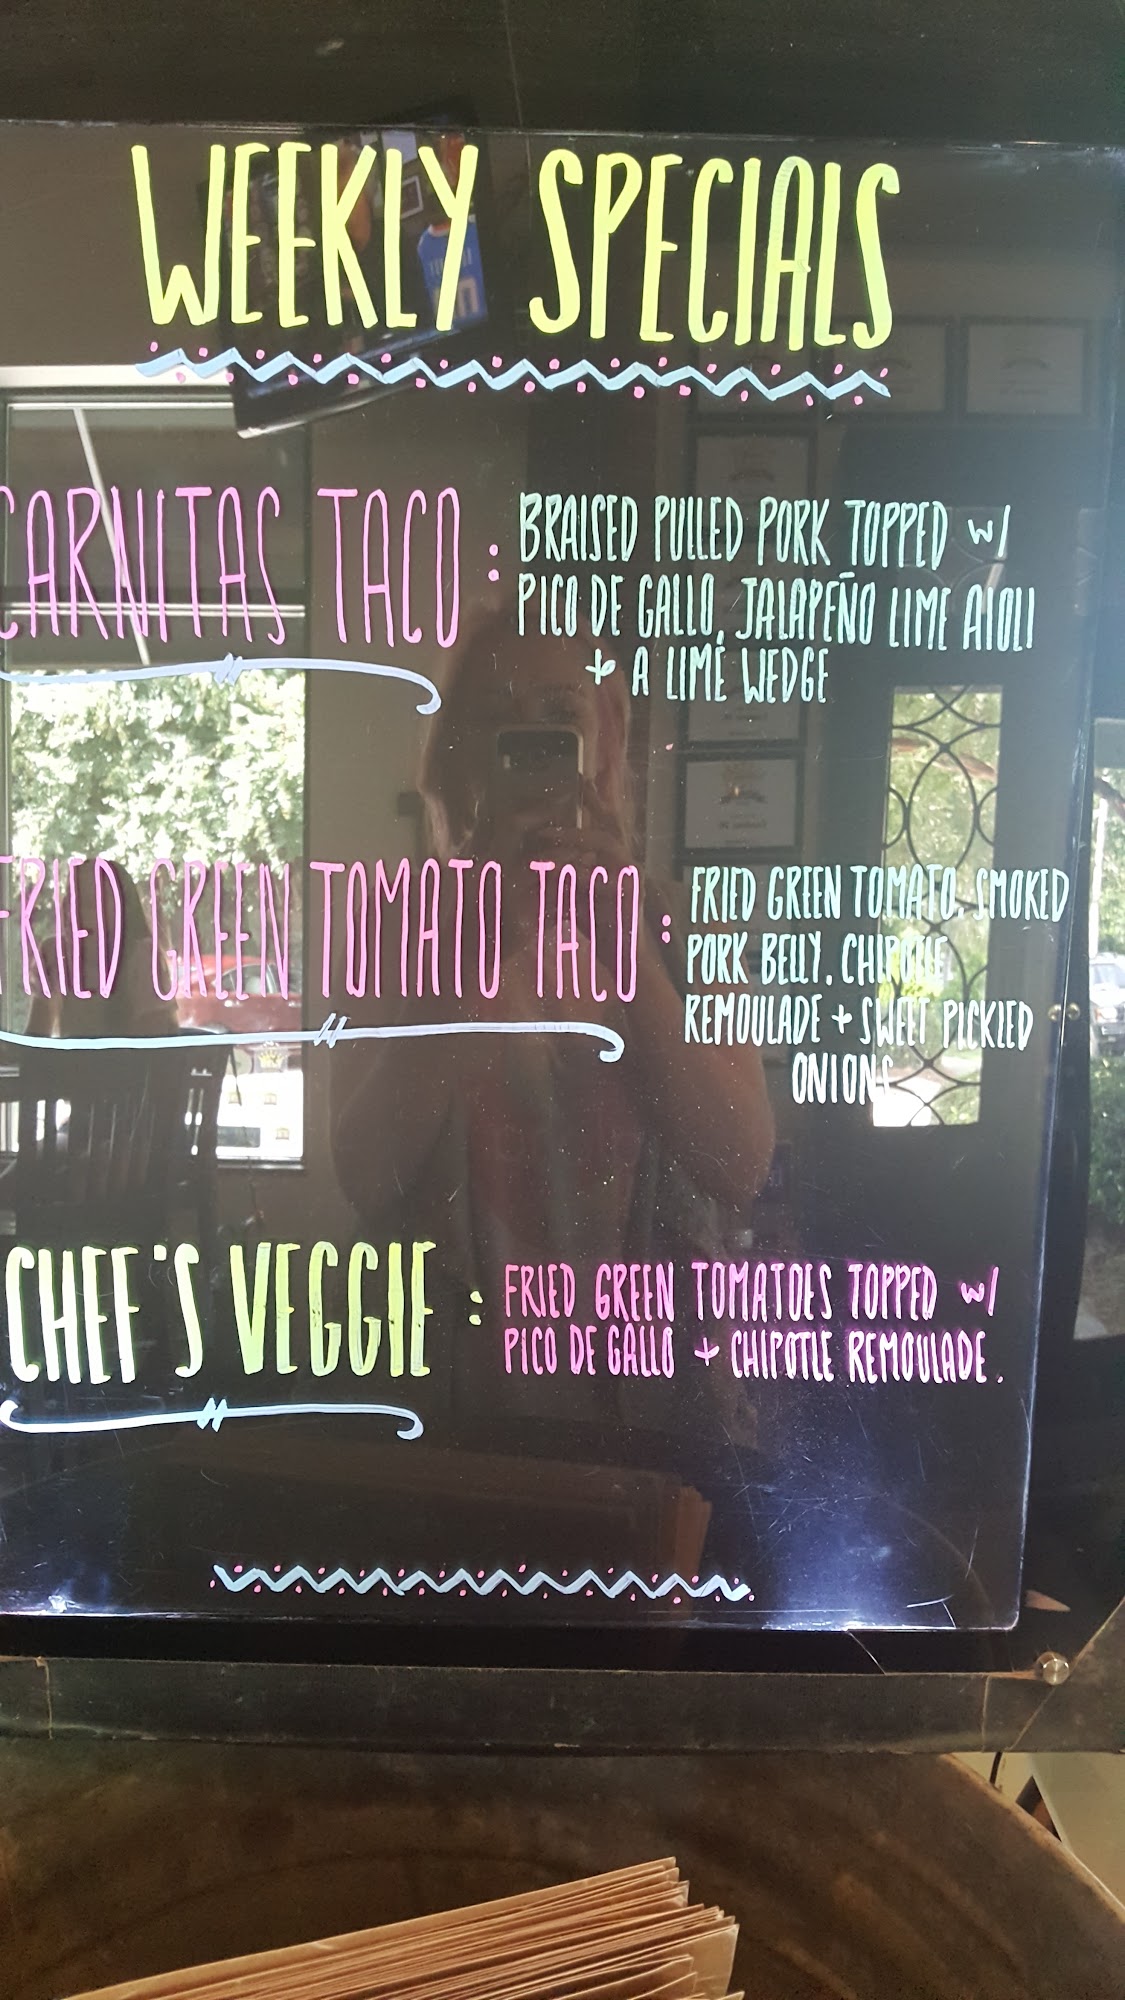 WEEKLY SPECIALS
CARNITAS TACO : BRAISED PULLED PORK TOPPED w/
PICO DE GALLO, JALAPEÑO LIME AIOLI
+ A LIME WEDGE
FRIED GREEN TOMATO TACO : FRIED GREEN TOMATO, SMOKED
PORK BELLY, CHIPOTLE
REMOULADE + SWEET PICKLED
ONIONS
CHEF'S VEGGIE : FRIED GREEN TOMATOES TOPPED w/
PICO DE GALLO + CHIPOTLE REMOULADE.